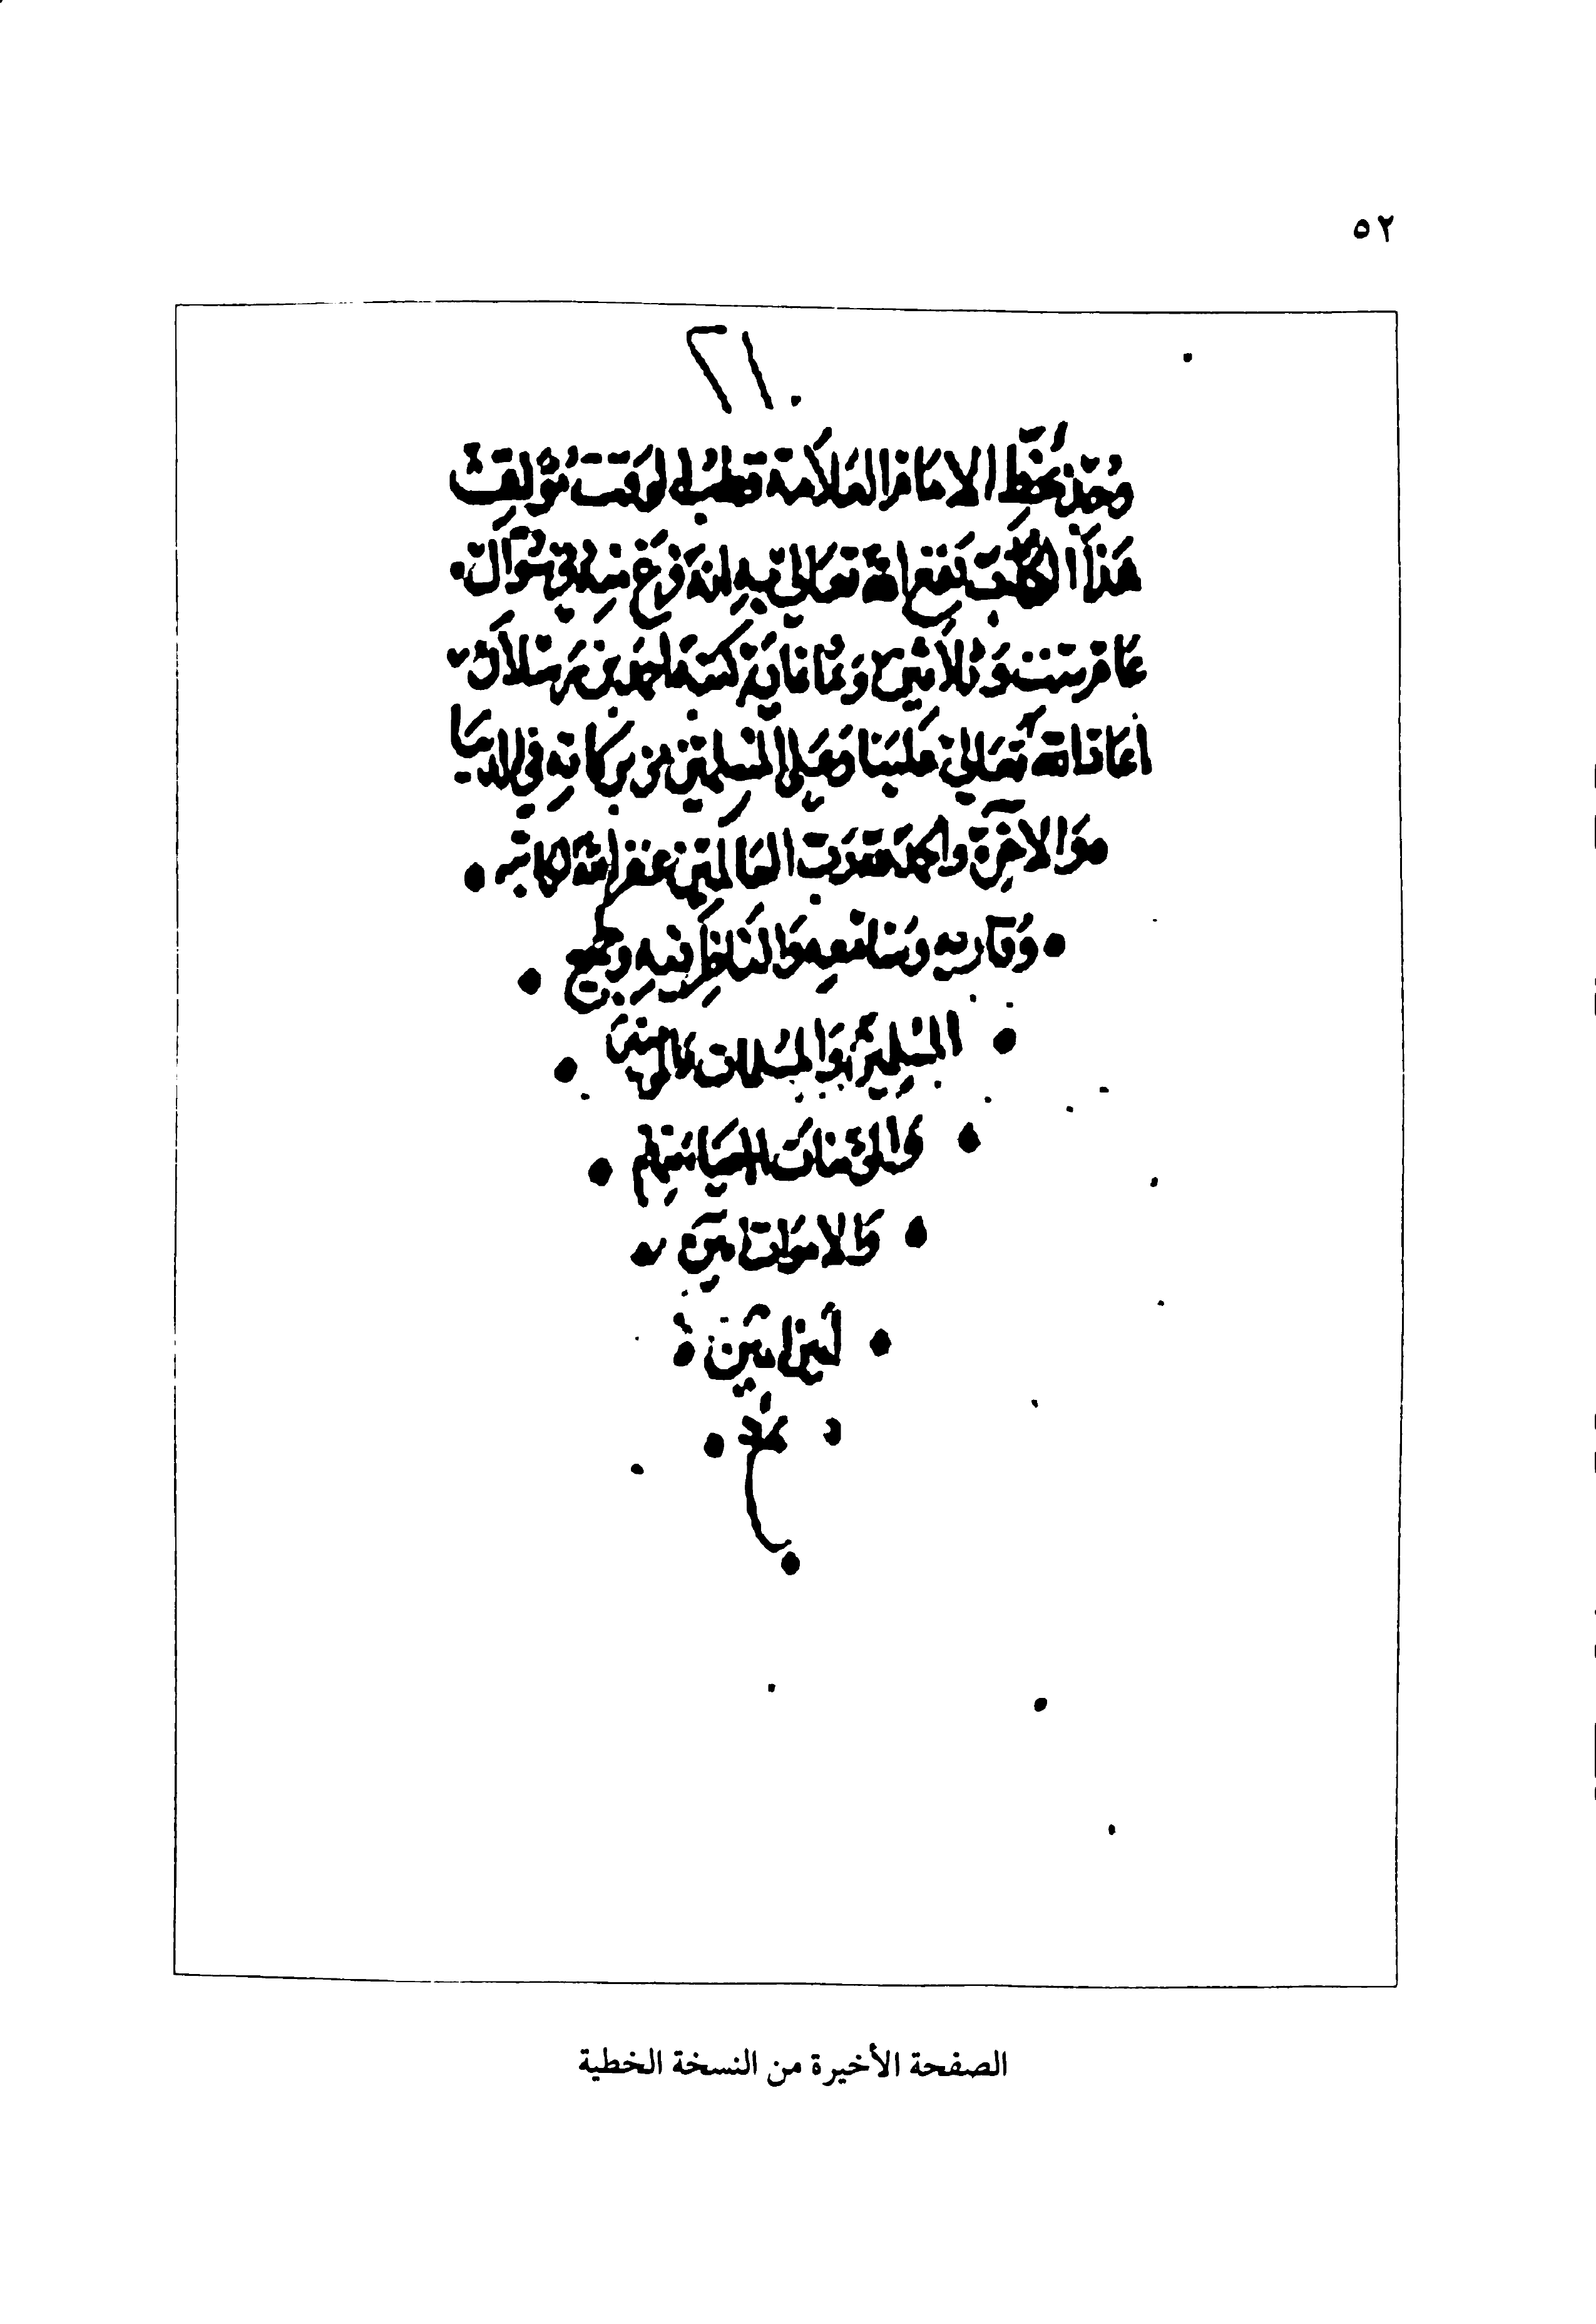 ٥٢
٢١٠
بخط الامام العلامة قطب الوقت مؤلف
هذا الكتاب نفع الله تعالى به انه فرغ منه في شوال
عام ست وثلاثين وثمانماية كتبه احمد بن رسلان
اعاد الله تعالى علينا وعلى المسلمين من بركاته في الدنيا
والاخرة والحمد لله رب العالمين غفر الله لكاتبه
وقاريه وسامعه والناظر فيه وجميع
المسلمين والمسلمات والمؤمنين
والمؤمنات الاحياء منهم
والاموات امين
امين
الصفحة الأخيرة من النسخة الخطية